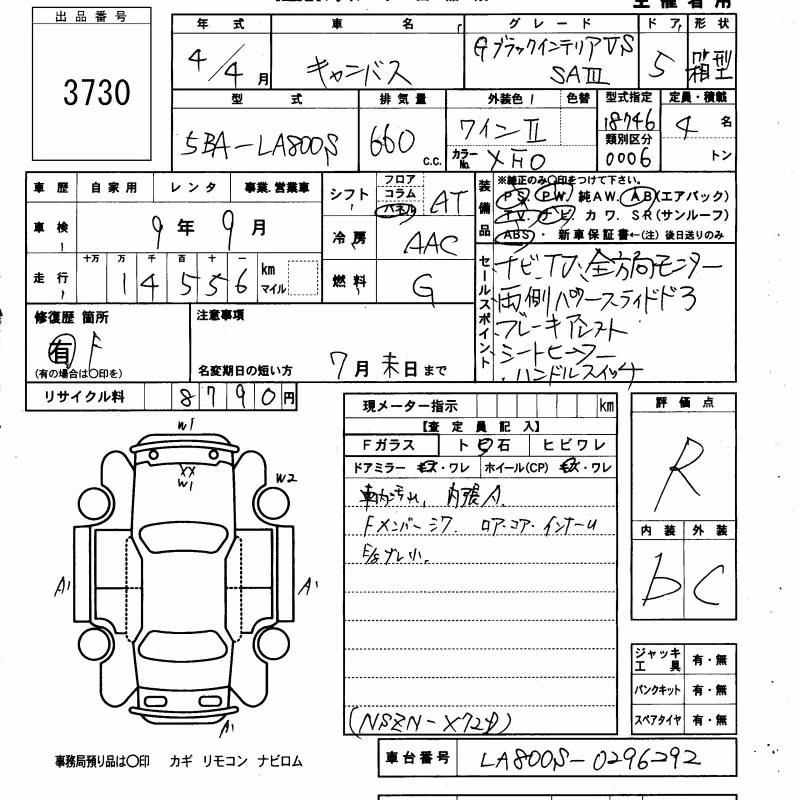 主催者用
出品番号
3730
年式 車名 グレード ドア 形状
4/4月 キャンバス GブラックインテリアVS SAⅢ 5 箱型
型式 排気量 外装色 色替 型式指定 定員・積載
5BA-LA800S 660 c.c. ワインⅡ 18746 4名
カラーNo. 類別区分 0006 トン
車歴 自家用 レンタ 事業.営業車
車検 9年9月
走行 十万 万 千 百 十 一
14556 km マイル
シフト フロア コラム パネル AT
冷房 AAC
燃料 G
装備品 ※純正のみ〇印をつけて下さい。
PS. PW. 純AW. AB(エアバック)
TV. ナビ カワ. SR(サンルーフ)
ABS・ 新車保証書←(注) 後日送りのみ
セールスポイント
ナビ、TV、全方向モニター
両側パワースライドドア
ブレーキアシスト
シートヒーター
・ハンドルスイッチ
修復歴 箇所
有 F
(有の場合は〇印を)
注意事項
名変期日の短い方 7月末日まで
リサイクル料 8790円
現メーター指示 km
【査定員記入】
Fガラス ト目石 ヒビワレ
ドアミラー キズ・ワレ ホイール(CP) キズ・ワレ
車内汚れ, 内張A.
Fメンバーシワ. ロア.コア.インナーU
(NSZN-X72D)
評価点
R
内装 外装
b C
ジャッキ工具 有・無
パンクキット 有・無
スペアタイヤ 有・無
W1
XX
W1
W2
A1
A1
A1
事務局預り品は〇印 カギ リモコン ナビロム
車台番号 LA800S-0296292